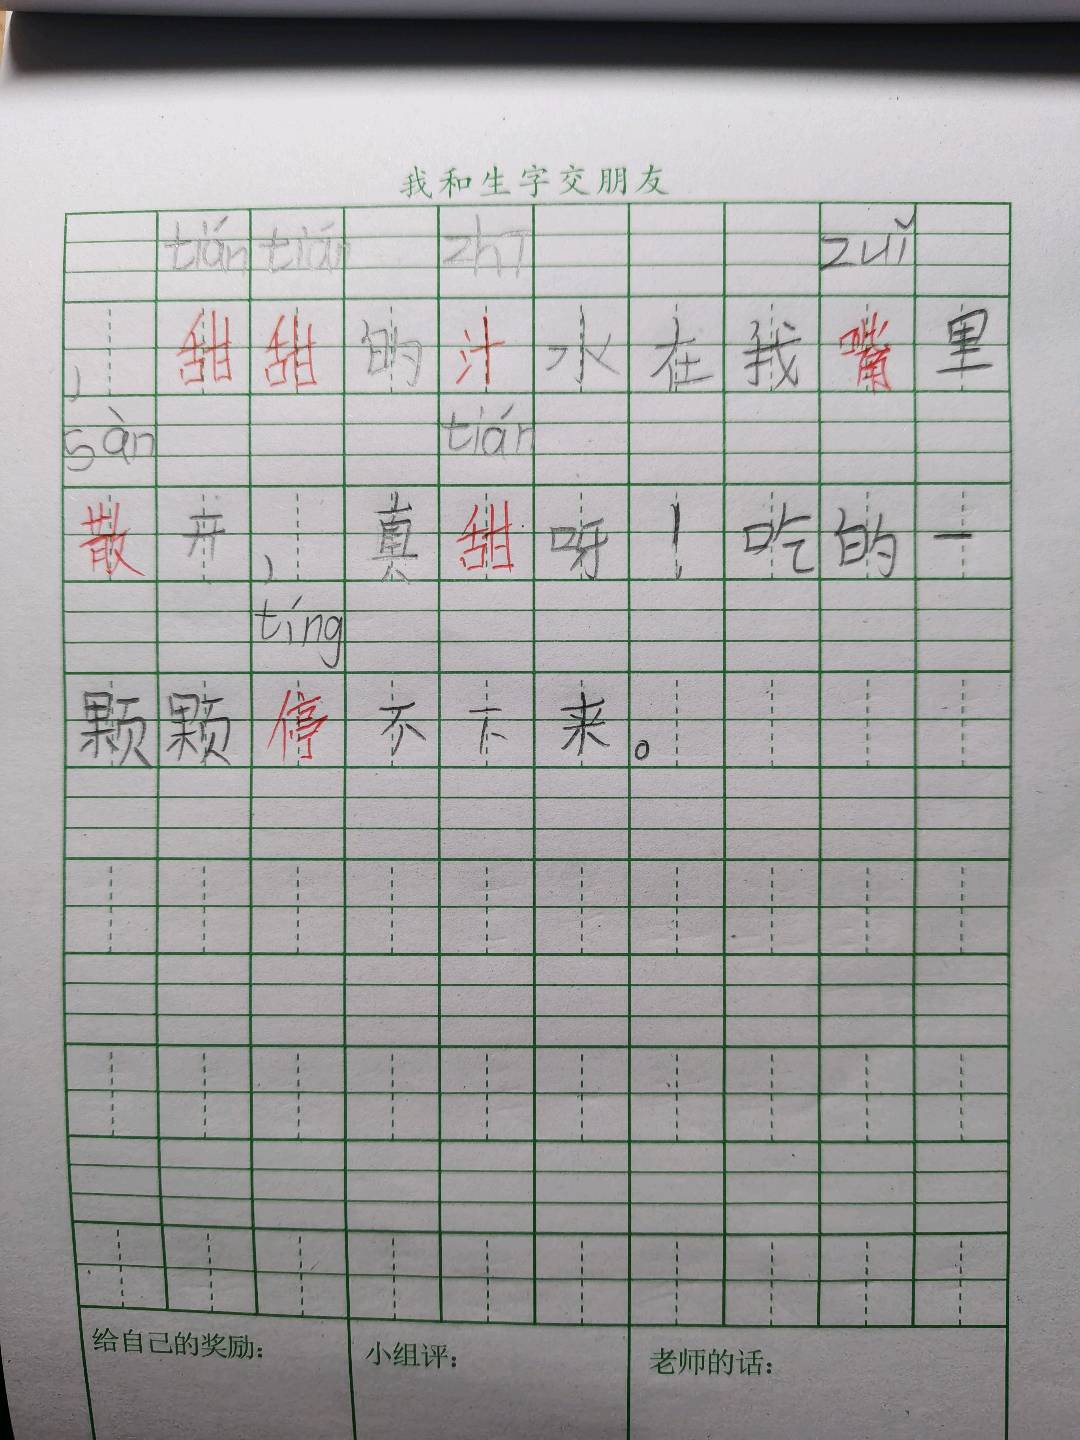 我和生字交朋友
tián tián zhī zuǐ
，甜甜的汁水在我嘴里
sàn tián
散开，真甜呀！吃的一
tíng
颗颗停不下来。
给自己的奖励： 小组评： 老师的话：